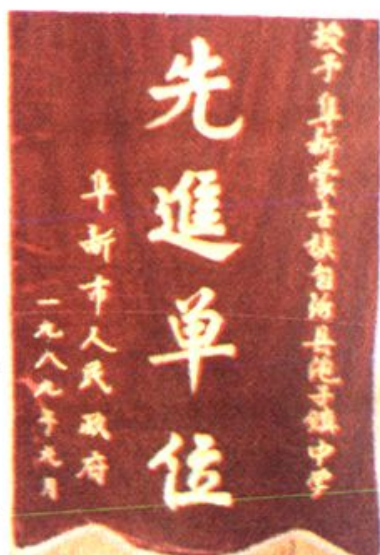 授予阜新蒙古族自治县泡子镇中学
先進单位
阜新市人民政府
一九八九年元月